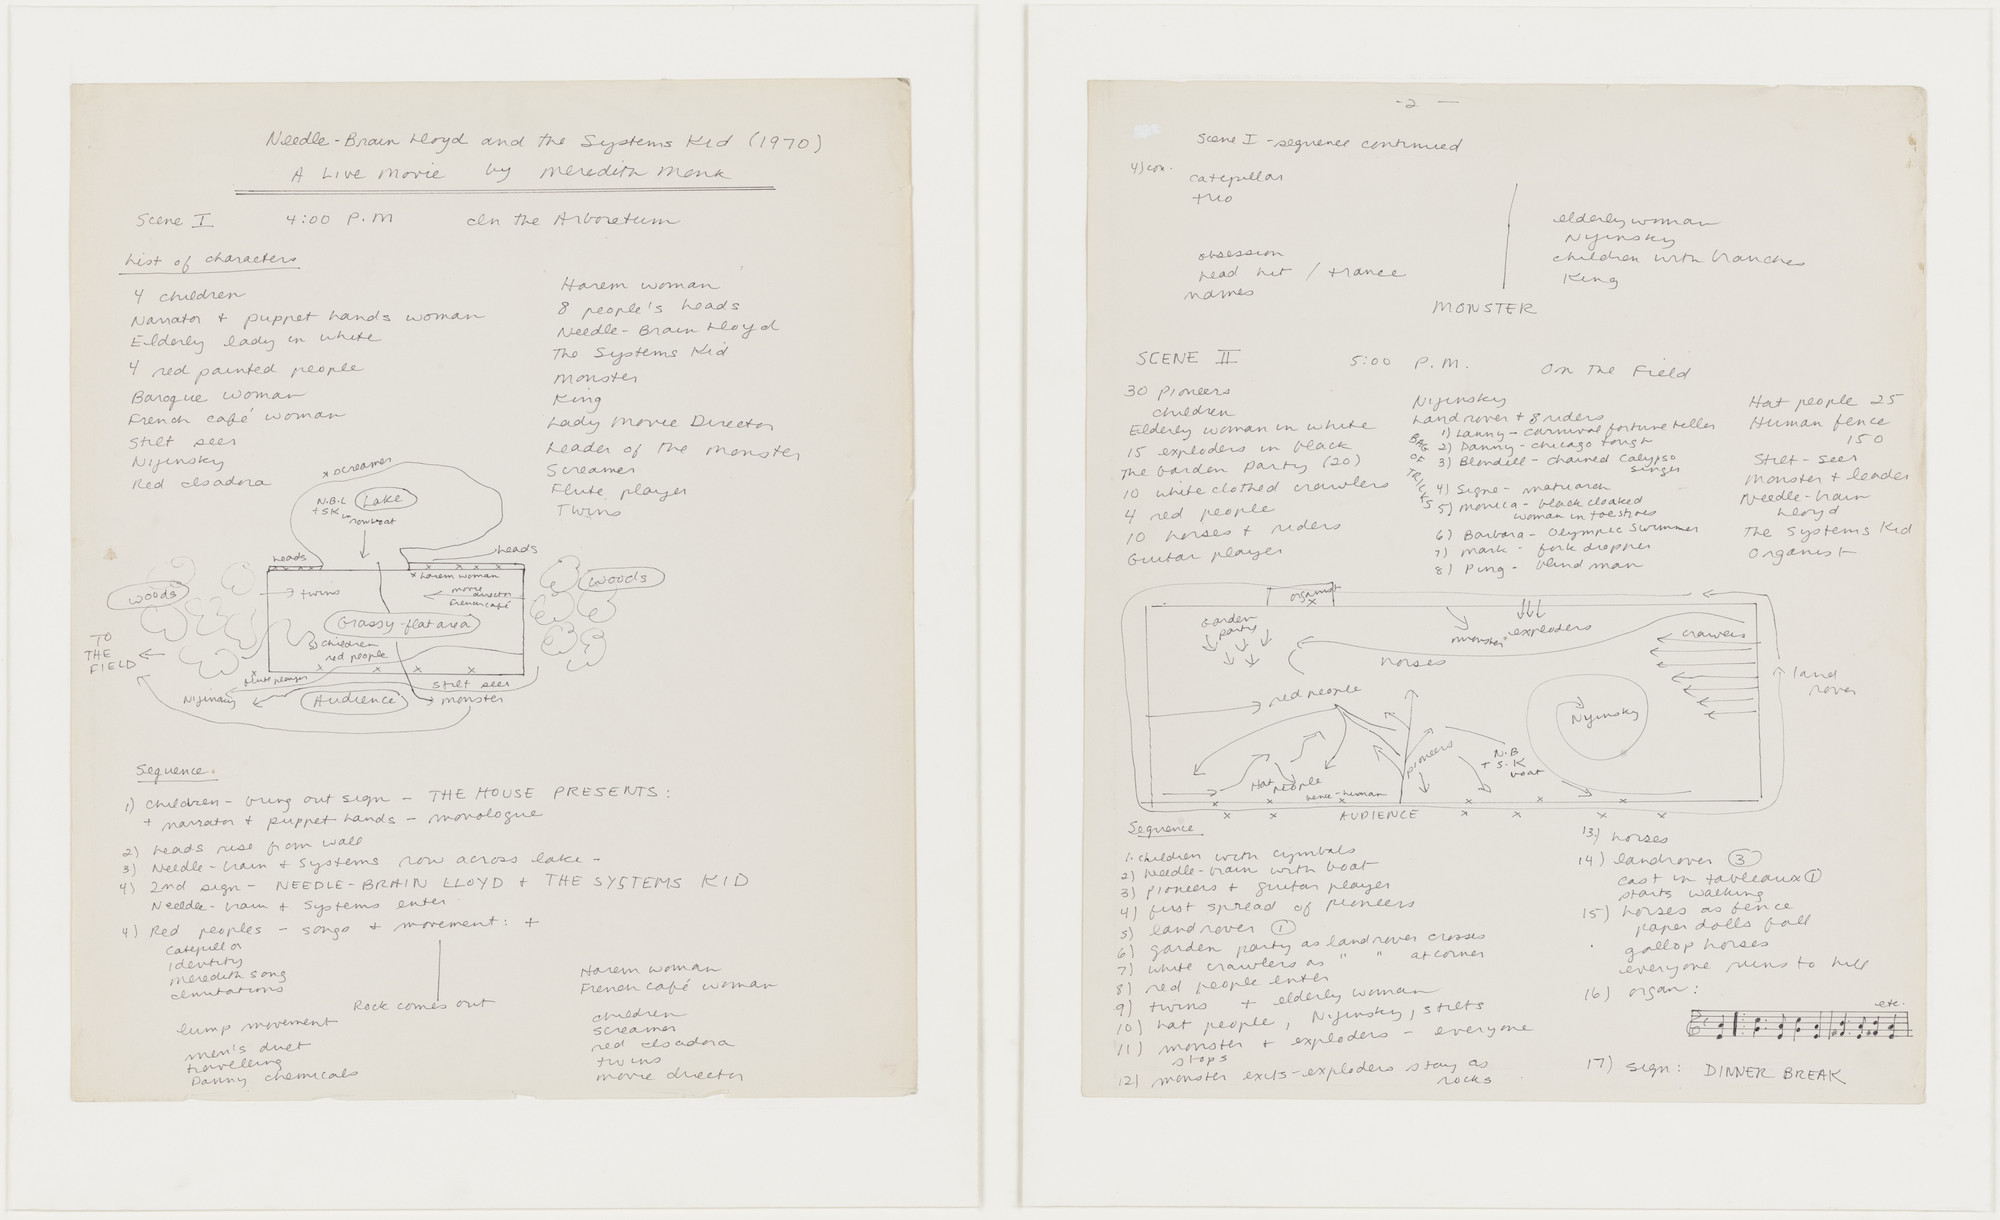 Needle-Brain Lloyd and the Systems Kid (1970)
A Live Movie by Meredith Monk
Scene I 4:00 P.M In the Arboretum
List of characters
4 children
Narrator + puppet hands woman
Elderly lady in white
4 red painted people
Baroque woman
French café woman
Stilt seer
Nijinsky
Red Isadora
Harem woman
8 people's heads
Needle-Brain Lloyd
The Systems Kid
Monster
King
Lady Movie Director
Leader of the Monster
Screamer
Flute player
Twins
x screamer
N.B.L
+ S K in
rowboat
Lake
heads
heads
x Harem woman
woods
woods
twins
movie
director
French café
Grassy-flat area
children
red people
TO
THE
FIELD
flute player
Nijinsky
Audience
stilt seer
monster
Sequence.
1) children - bring out sign - THE HOUSE PRESENTS:
+ narrator + puppet hands - monologue
2) heads rise from wall
3) Needle-brain + Systems row across lake -
4) 2nd sign - NEEDLE-BRAIN LLOYD + THE SYSTEMS KID
Needle-brain + Systems enter
4) Red peoples - songs + movement: +
catepillar
identity
Meredith song
imitations
Rock comes out
lump movement
men's duet
travelling
Danny chemicals
Harem woman
French café woman
children
screamer
red Isadora
twins
movie director
-2 -
Scene I - sequence continued
4) con.
catepillar
trio
obsession
head hit / trance
names
elderly woman
Nijinsky
children with branches
King
MONSTER
SCENE II 5:00 P.M. On The Field
30 Pioneers
children
Elderly woman in white
15 exploders in black
The Garden Party (20)
10 white clothed crawlers
4 red people
10 horses + riders
Guitar player
Nijinsky
Landrover + 8 riders
BAG OF TRICKS
1) Lanny - carnival fortune teller
2) Danny - chicago tough
3) Blondell - chained calypso
singer
4) Signe - matriarch
5) Monica - black cloaked
woman in toe shoes
6) Barbara - Olympic Swimmer
7) Mark - fork dropper
8) Ping - blind man
Hat people 25
Human fence
150
Stilt-seer
Monster + leader
Needle-brain
Lloyd
The Systems Kid
Organist
organist
x
Garden
party
monster
exploders
crawlers
horses
land
rover
red people
Nijinsky
pioneers
N.B
+ S.K
boat
Hat
People
fence-human
AUDIENCE
Sequence
1. children with cymbals
2) Needle-brain with boat
3) pioneers + guitar player
4) first spread of pioneers
5) landrover 1
6) garden party as landrover crosses
7) white crawlers as " " at corner
8) red people enter
9) twins + elderly woman
10) hat people, Nijinsky, stilts
11) monster + exploders - everyone
stops
12) monster exits - exploders stay as
rocks
13) horses
14) landrover 3
cast in tableaux 1
starts walking
15) horses as fence
paper dolls fall
gallop horses
everyone runs to hill
16) organ:
etc.
17) Sign: DINNER BREAK